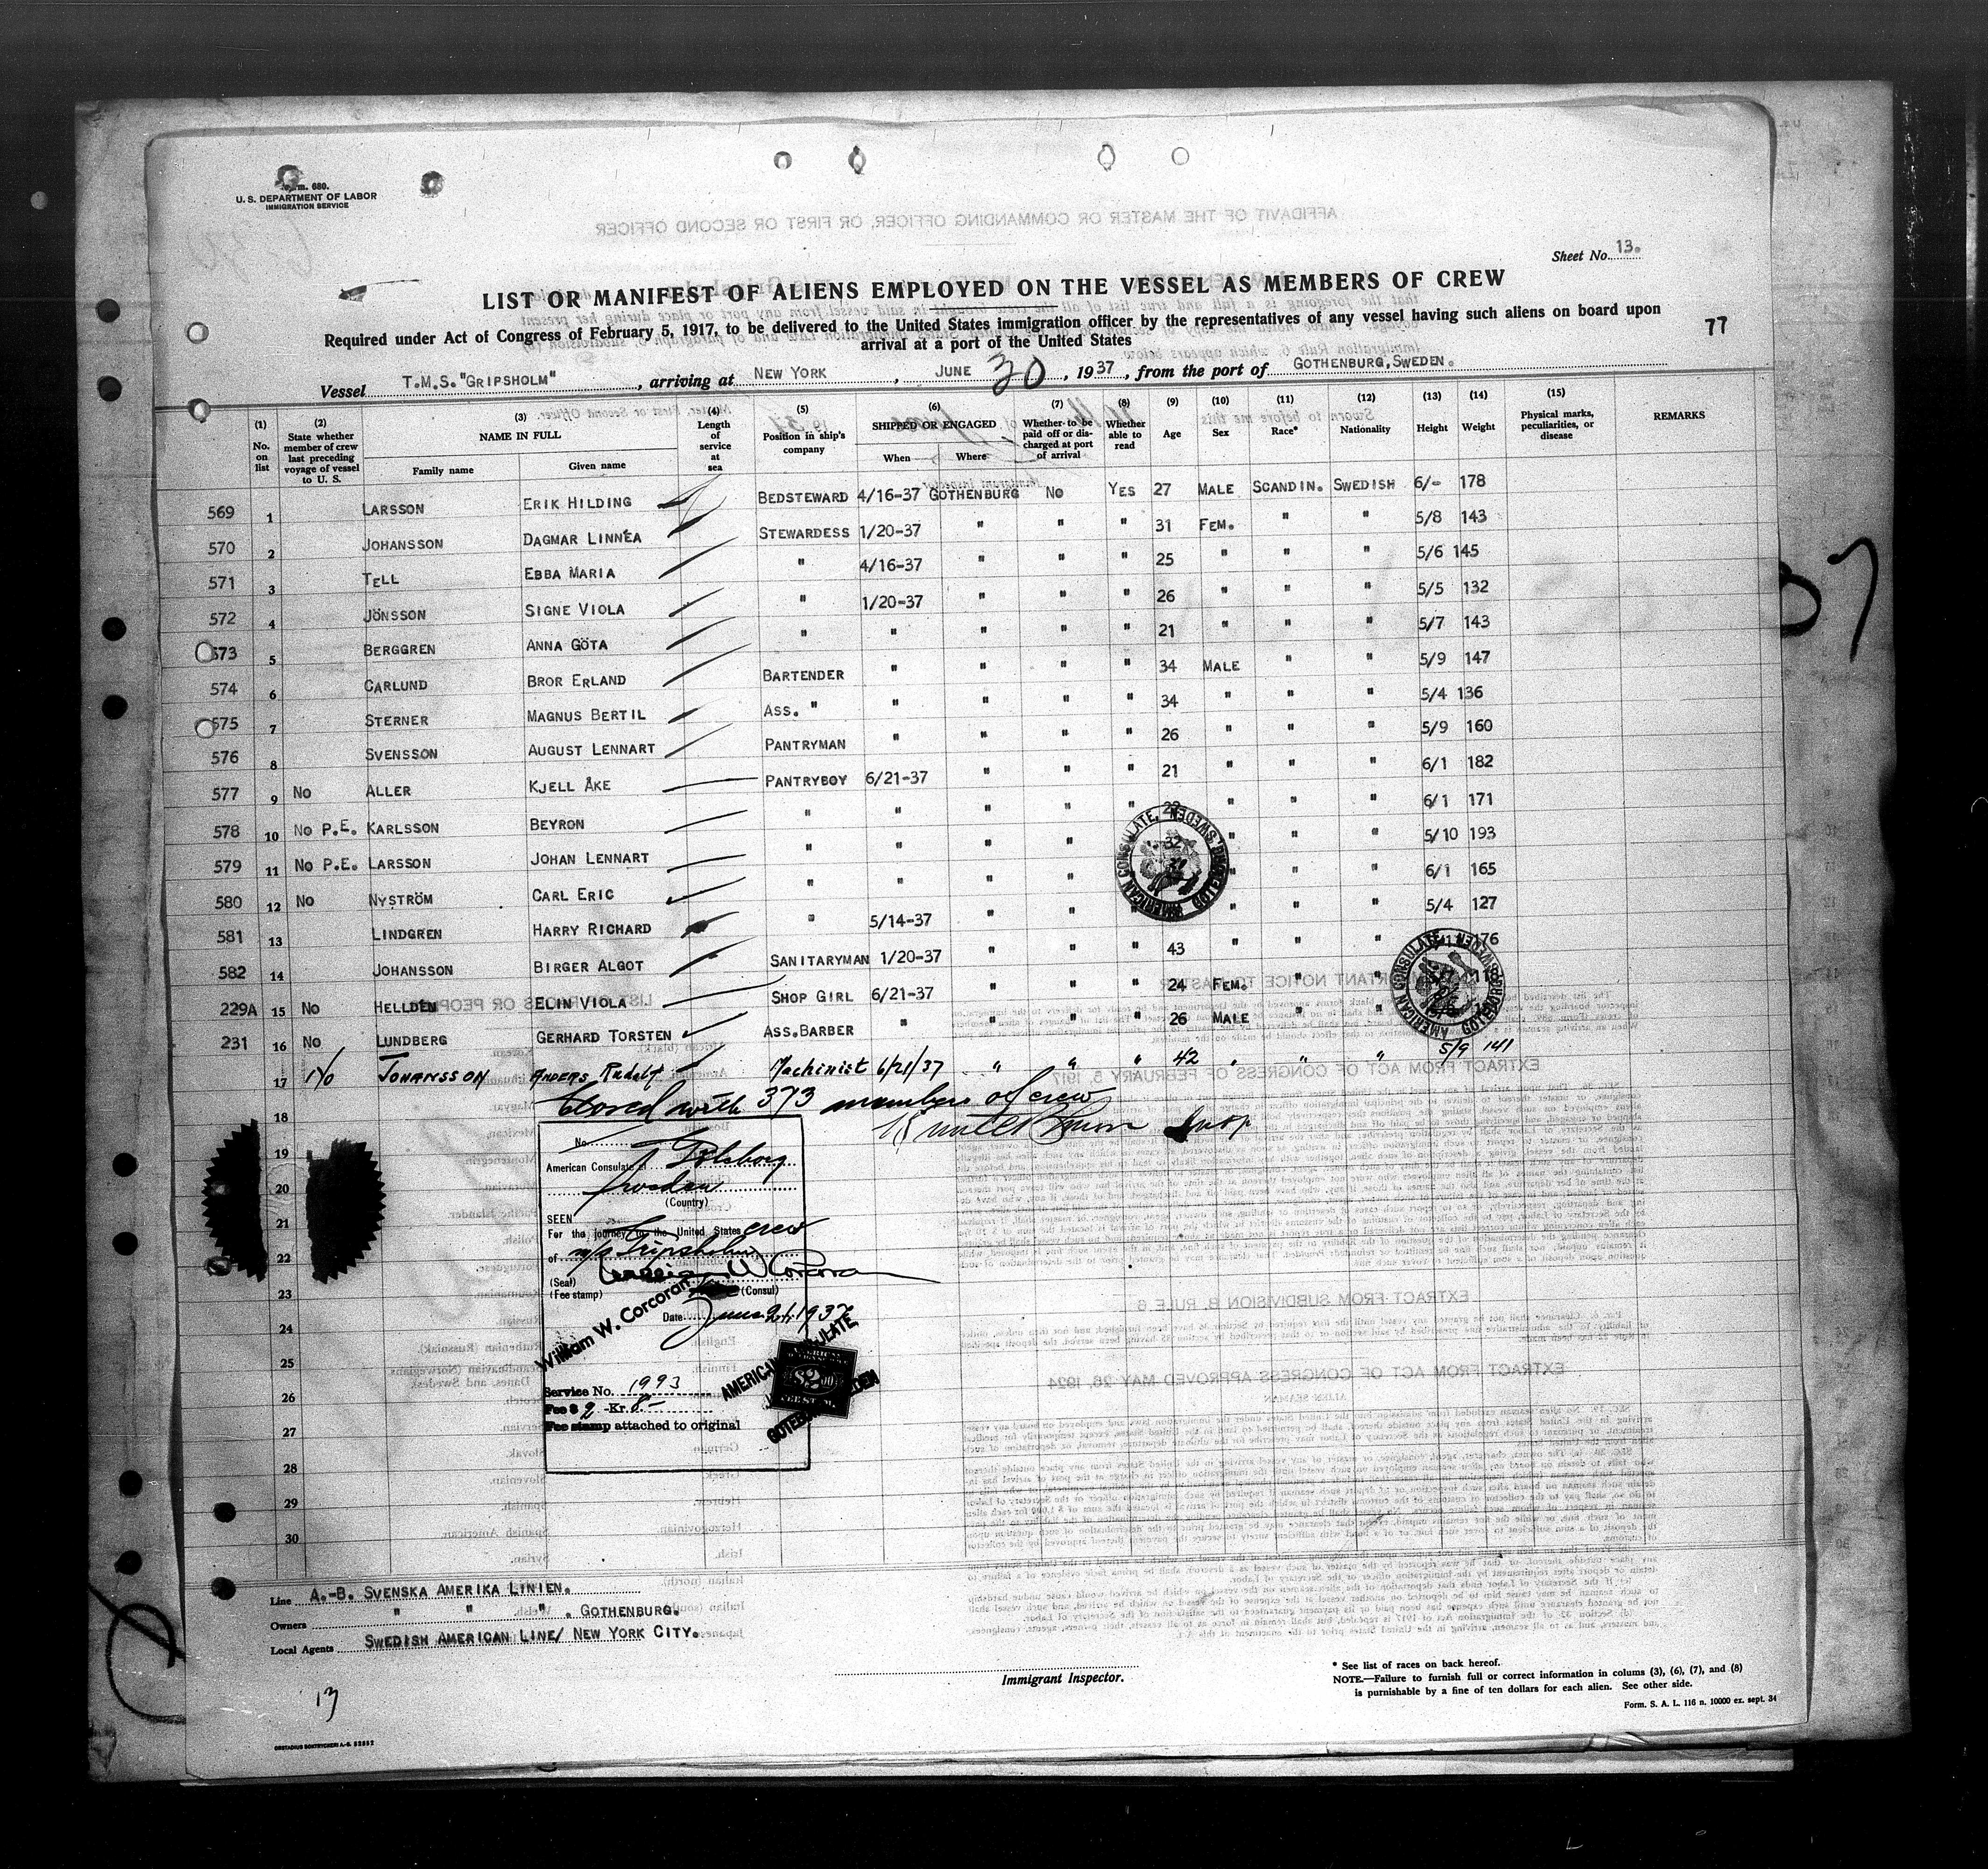 Form. 680.
U. S. DEPARTMENT OF LABOR
IMMIGRATION SERVICE
Sheet No. 13.
LIST OR MANIFEST OF ALIENS EMPLOYED ON THE VESSEL AS MEMBERS OF CREW
Required under Act of Congress of February 5, 1917, to be delivered to the United States immigration officer by the representatives of any vessel having such aliens on board upon
arrival at a port of the United States
77
Vessel T.M.S. "GRIPSHOLM", arriving at NEW YORK, JUNE 30, 1937, from the port of GOTHENBURG, SWEDEN.
(1) No. on list (2) State whether member of crew last preceding voyage of vessel to U. S. (3) NAME IN FULL Family name Given name (4) Length of service at sea (5) Position in ship's company (6) SHIPPED OR ENGAGED When Where (7) Whether to be paid off or discharged at port of arrival (8) Whether able to read (9) Age (10) Sex (11) Race* (12) Nationality (13) Height (14) Weight (15) Physical marks, peculiarities, or disease REMARKS
569 1 LARSSON ERIK HILDING BEDSTEWARD 4/16-37 GOTHENBURG NO YES 27 MALE SCANDIN. SWEDISH 6/- 178
570 2 JOHANSSON DAGMAR LINNÉA STEWARDESS 1/20-37 " " " 31 FEM. " " 5/8 143
571 3 TELL EBBA MARIA " 4/16-37 " " " 25 " " " 5/6 145
572 4 JÖNSSON SIGNE VIOLA " 1/20-37 " " " 26 " " " 5/5 132
573 5 BERGGREN ANNA GÖTA " " " " " 21 " " " 5/7 143
574 6 CARLUND BROR ERLAND BARTENDER " " " " 34 MALE " " 5/9 147
575 7 STERNER MAGNUS BERTIL ASS. " " " " " 34 " " " 5/4 136
576 8 SVENSSON AUGUST LENNART PANTRYMAN " " " " 26 " " " 5/9 160
577 9 NO ALLER KJELL ÅKE PANTRYBOY 6/21-37 " " " 21 " " " 6/1 182
578 10 NO P.E. KARLSSON BEYRON " " " " " " " " 6/1 171
579 11 NO P.E. LARSSON JOHAN LENNART " " " " 32 " " " 5/10 193
580 12 NO NYSTRÖM CARL ERIC " " " " " " " 6/1 165
581 13 LINDGREN HARRY RICHARD " 5/14-37 " " " " " " 5/4 127
582 14 JOHANSSON BIRGER ALGOT SANITARYMAN 1/20-37 " " " 43 " " " 176
229A 15 NO HELLDEN ELIN VIOLA SHOP GIRL 6/21-37 " " " 24 FEM. " " 118
231 16 NO LUNDBERG GERHARD TORSTEN ASS. BARBER " " " " 26 MALE " "
17 No JOHANSSON ANDERS Rudolf Machinist 6/21/37 " " " 42 " " " 5/9 141
Closed with 373 members of crew
18
19
20
21
22
23
24
25
26
27
28
29
30
No.
American Consulate at Göteborg
Sweden
(Country)
SEEN
For the journey to the United States crew
of m/s Gripsholm
William W Corcoran
(Seal)
(Fee stamp) (Consul)
William W. Corcoran
Date June 21, 1937
Service No. 1993
Fee $ 2 -Kr. 8-
Fee stamp attached to original
AMERICAN CONSULATE, GOTEBORG, SWEDEN
AMERICAN CONSULATE, GOTEBORG, SWEDEN
Line A.-B. SVENSKA AMERIKA LINIEN.
Owners " " " . GOTHENBURG.
Local Agents SWEDISH AMERICAN LINE/ NEW YORK CITY.
Immigrant Inspector.
* See list of races on back hereof.
NOTE.—Failure to furnish full or correct information in colums (3), (6), (7), and (8)
is punishable by a fine of ten dollars for each alien. See other side.
Form. S. A. L. 116 n. 10000 ex. sept. 34
13